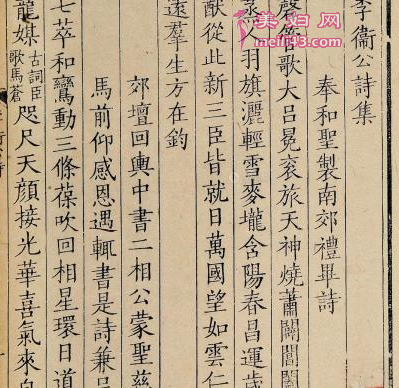 美妇网
李衞公詩集
奉和聖製南郊禮畢詩
磬管歌大呂冕裘旅天神燒蕭闢閶闔
人羽旗灑輕雪麥壠含陽春昌運歲
猷從此新三臣皆就日萬國望如雲仁
遠羣生方在鈞
郊壇回輿中書二相公蒙聖慈
馬前仰感恩遇輒書是詩兼呈
七萃和鸞動三條葆吹回相星環日道
龍媒古詞臣歌馬蒼咫尺天顏接光華喜氣來自